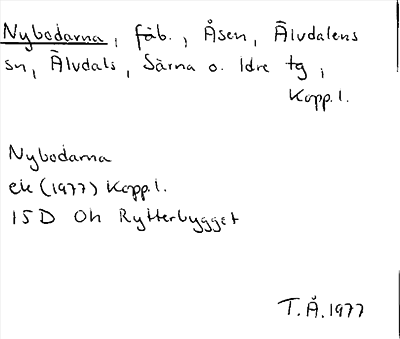 Nybodarna, fäb., Åsen, Älvdalens
sn, Älvdals, Särna o. Idre tg,
Kopp.l.
Nybodarna
ek (1977) Kopp.l.
15D Oh Rytterbygget
T.Å.1977